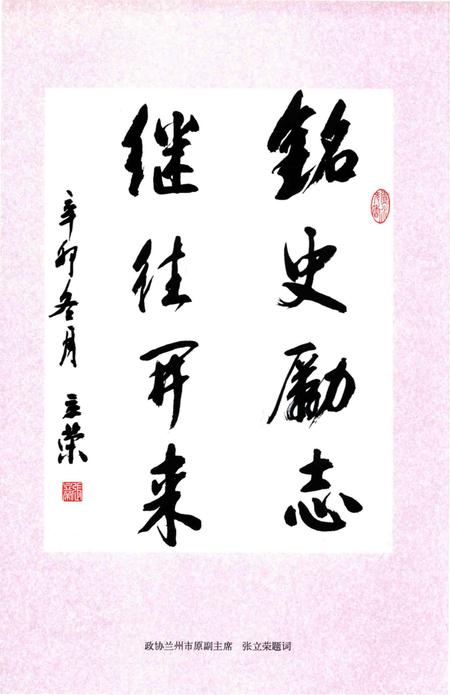 銘史勵志
继往开来
辛卯冬月 立荣
政协兰州市原副主席 张立荣题词